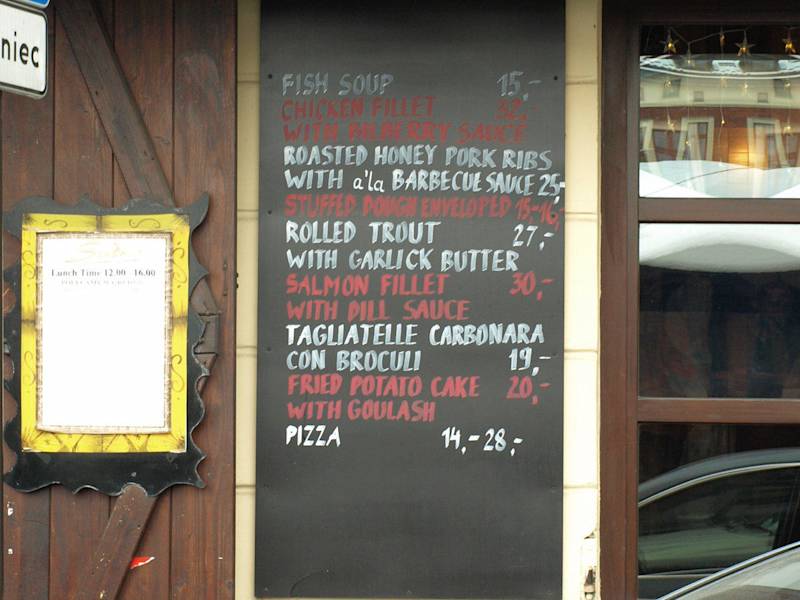 niec
Lunch Time 12.00 - 16.00
FISH SOUP 15,-
CHICKEN FILLET 32,-
WITH BILBERRY SAUCE
ROASTED HONEY PORK RIBS
WITH a'la BARBECUE SAUCE 25,-
STUFFED DOUGH ENVELOPED 15,-16,-
ROLLED TROUT 27,-
WITH GARLICK BUTTER
SALMON FILLET 30,-
WITH DILL SAUCE
TAGLIATELLE CARBONARA
CON BROCULI 19,-
FRIED POTATO CAKE 20,-
WITH GOULASH
PIZZA 14,- 28,-